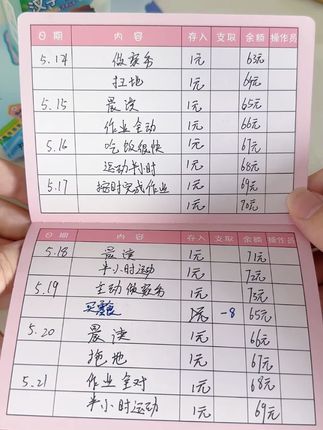 日期 内容 存入 支取 余额 操作员
5.14 做家务 1元 63元
扫地 1元 64元
5.15 晨读 1元 65元
作业全对 1元 66元
5.16 吃饭很快 1元 67元
运动半小时 1元 68元
5.17 按时完成作业 1元 69元
1元 70元
日期 内容 存入 支取 余额 操作员
5.18 晨读 1元 71元
半小时运动 1元 72元
5.19 主动做家务 1元 73元
买 -8 65元
5.20 晨读 1元 66元
拖地 1元 67元
5.21 作业全对 1元 68元
半小时运动 1元 69元